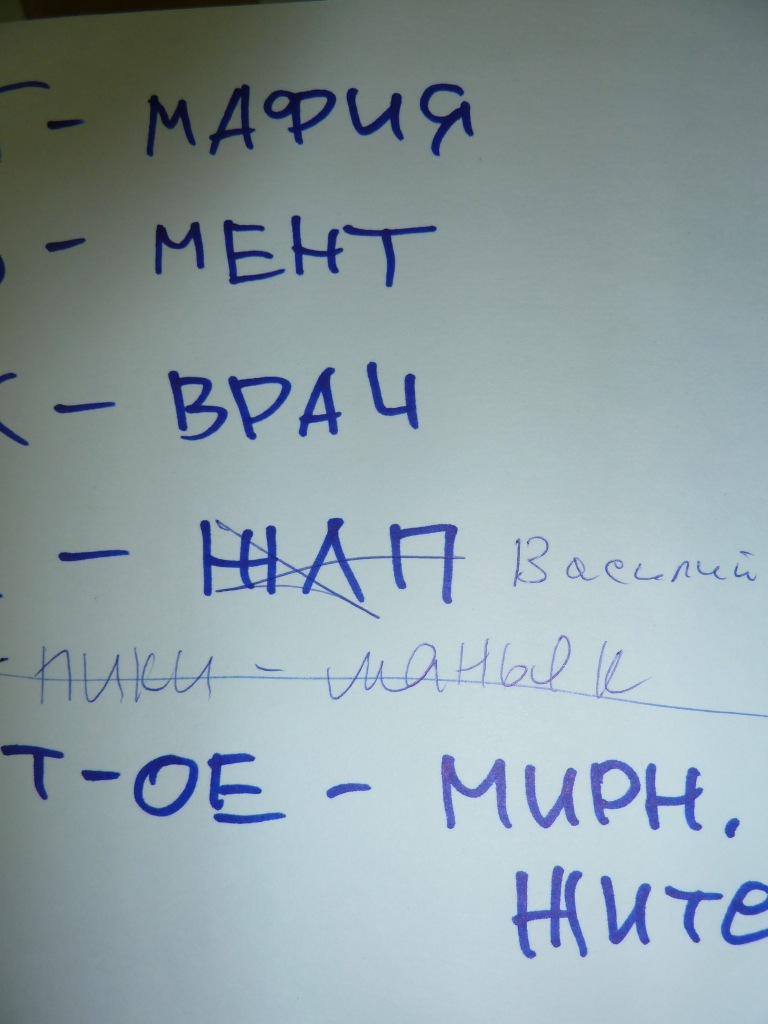 - МАФИЯ
- МЕНТ
- ВРАЧ
- ЖЛП Василий
- пики - маньяк
Т-ОЕ - МИРН.
ЖИТЕ